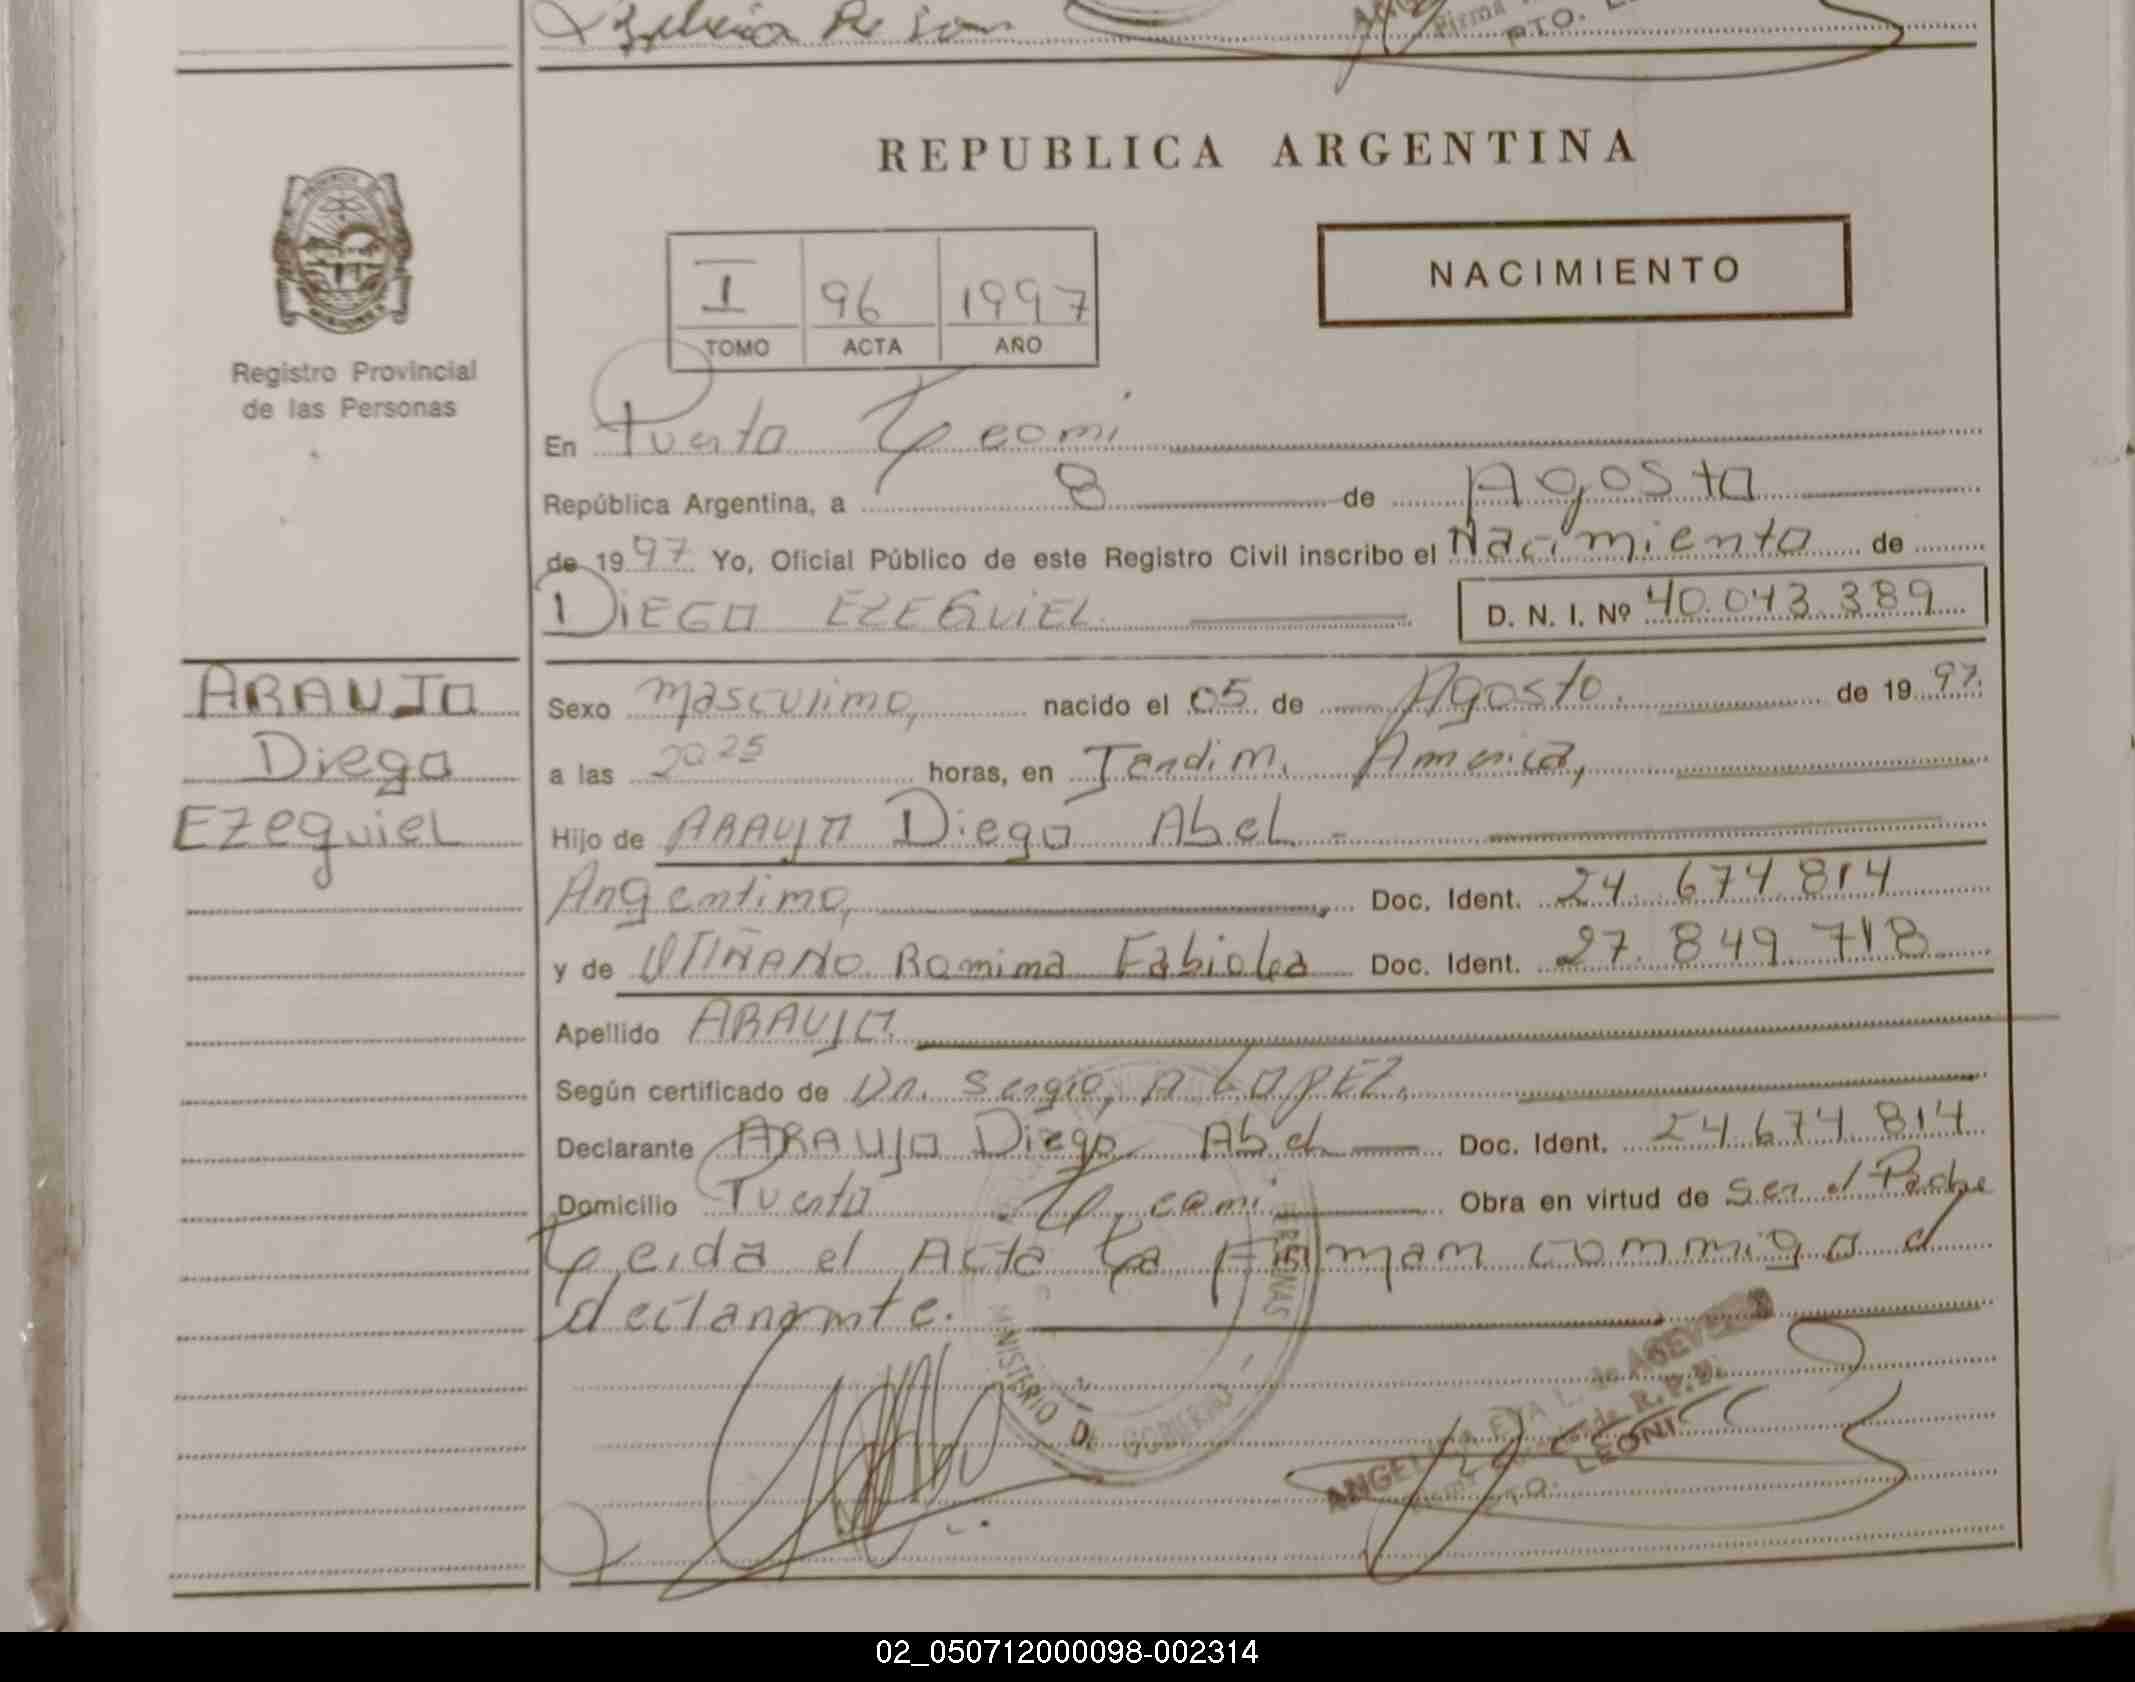 REPUBLICA ARGENTINA
NACIMIENTO
I 96 1997
TOMO ACTA AÑO
Registro Provincial
de las Personas
En Puerto Leoni
República Argentina, a 8 de Agosto
de 1997 Yo, Oficial Público de este Registro Civil inscribo el Nacimiento de
DIEGO EZEQUIEL D. N. I. Nº 40.043.389
ARAUJO
Diego
Ezequiel
Sexo masculino, nacido el 05 de Agosto. de 1997.
a las 2025 horas, en Jardin America,
Hijo de ARAUJO Diego Abel
Argentino, Doc. Ident. 24.674.814
y de UTIÑANO Romina Fabiola Doc. Ident. 27.849.718
Apellido ARAUJO
Según certificado de Dr. Sergio, A LOPEZ.
Declarante ARAUJO Diego Abel Doc. Ident. 24.674.814
Domicilio Puerto Leoni Obra en virtud de Ser el Padre
Leida el Acta La Firman conmigo el
declarante.
MINISTERIO DE GOBIERNO
ANGELICA EVA L. de ACEVEDO
R. P. P.
PTO. LEONI
02_050712000098-002314